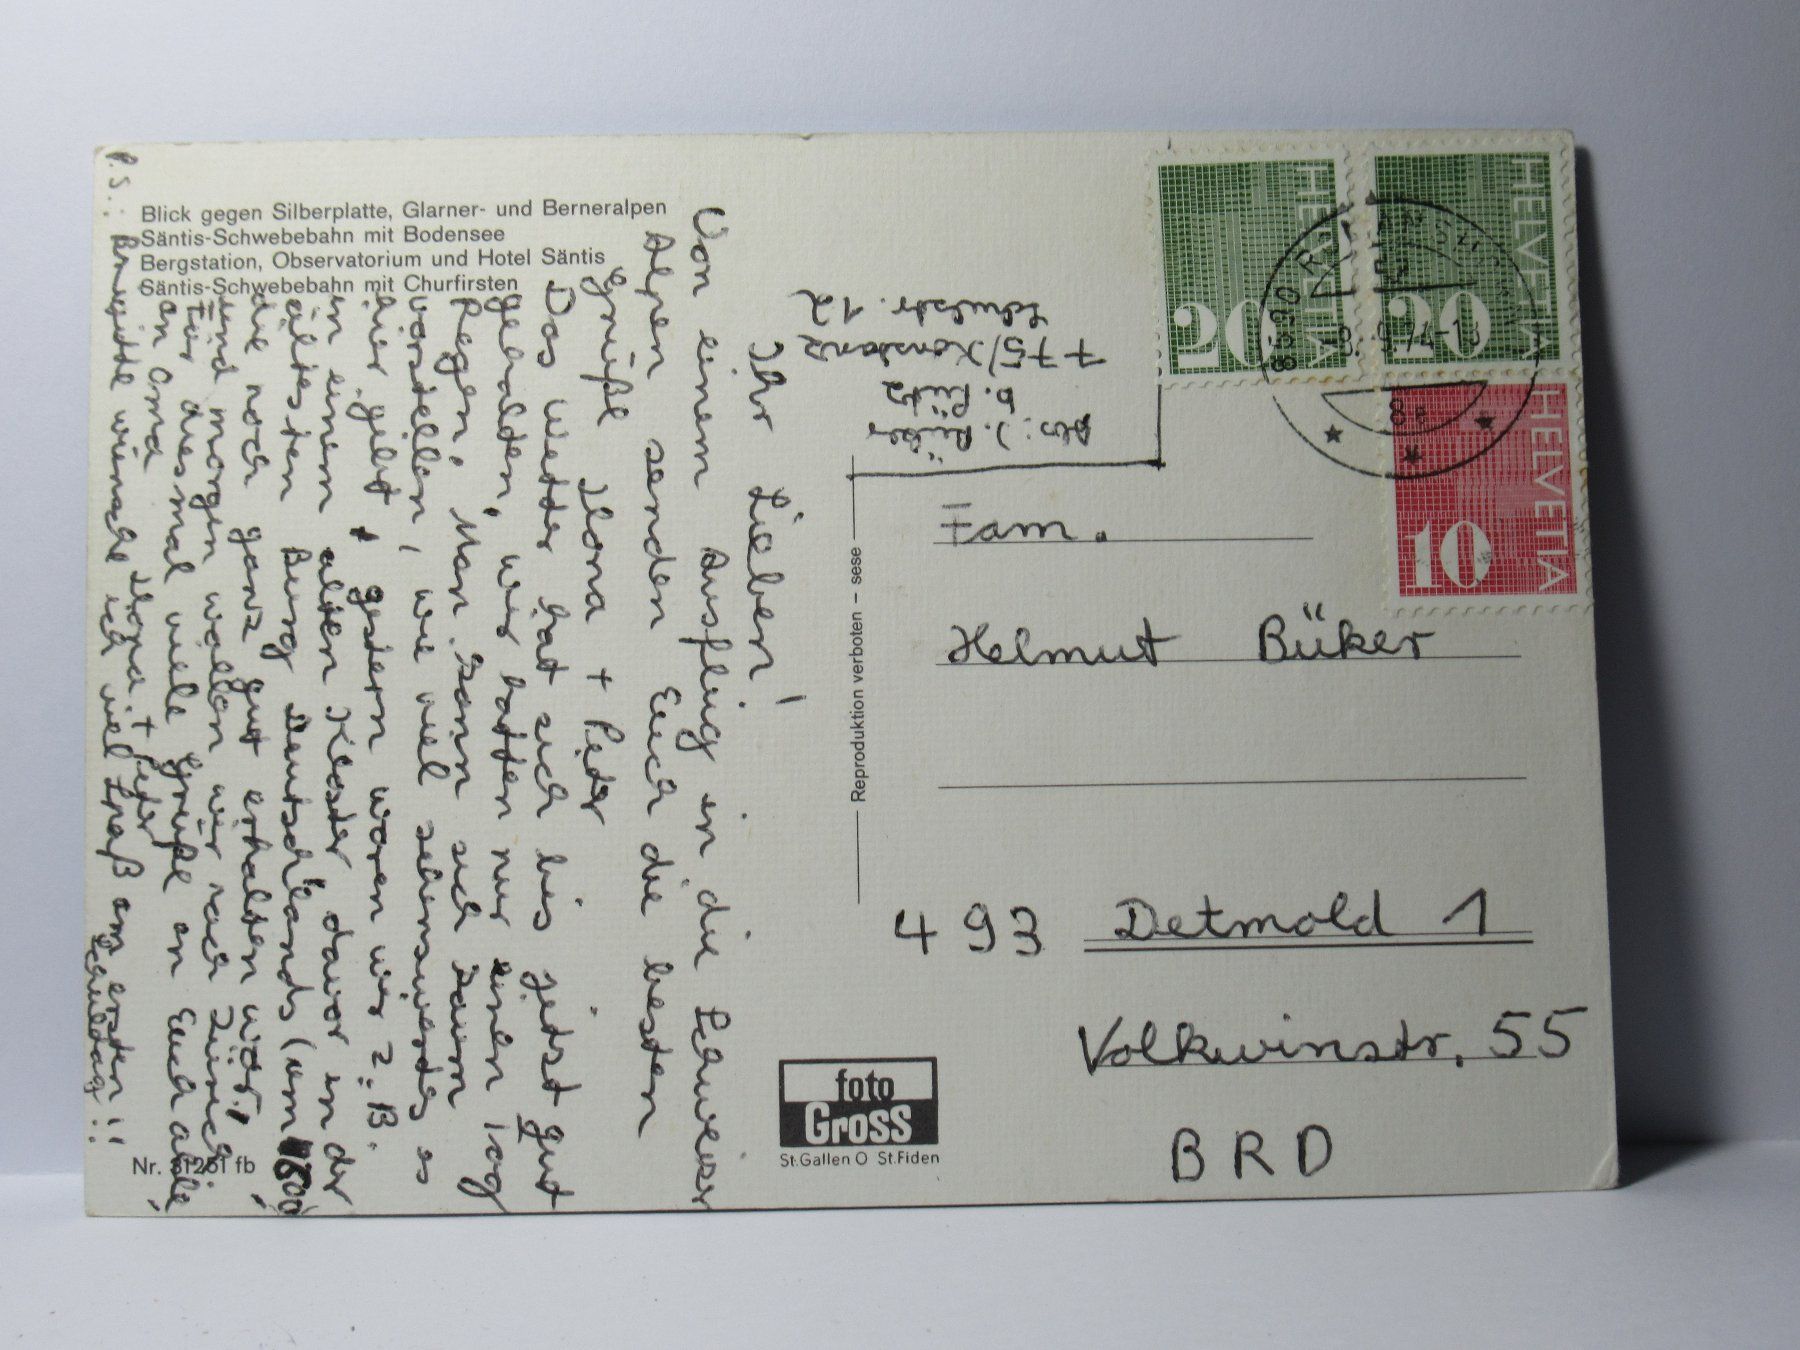 Blick gegen Silberplatte, Glarner- und Berneralpen
Säntis-Schwebebahn mit Bodensee
Bergstation, Observatorium und Hotel Säntis
Säntis-Schwebebahn mit Churfirsten
Ihr Lieben!
Von einem Ausflug in die Schweizer
Alpen senden Euch die besten
Grüße Ilona + Peter
Das Wetter hat sich bis jetzt gut
gehalten, wir hatten nur einen Tag
Regen. Man kann sich kaum
vorstellen, wie viel sehenswertes es
hier gibt, gestern waren wir z.B.
in einem alten Kloster davor in der
ältesten Burg Deutschlands (um 1800)
die noch ganz gut erhalten war,
und morgen wollen wir nach Zürich
Für diesmal viele Grüße an Euch alle
an Oma Ilona + Peter
P.S.: Annegitte wünsche ich viel Spaß am ersten
Schultag!!
Nr. 81261 fb
Reproduktion verboten – sese
foto
Gross
St.Gallen O St.Fiden
Abs: J.
775/Konstanz
Schulstr. 12
HELVETIA
20
HELVETIA
20
HELVETIA
10
9.74-18
Fam.
Helmut Büker
493 Detmold 1
Volkwinstr. 55
BRD